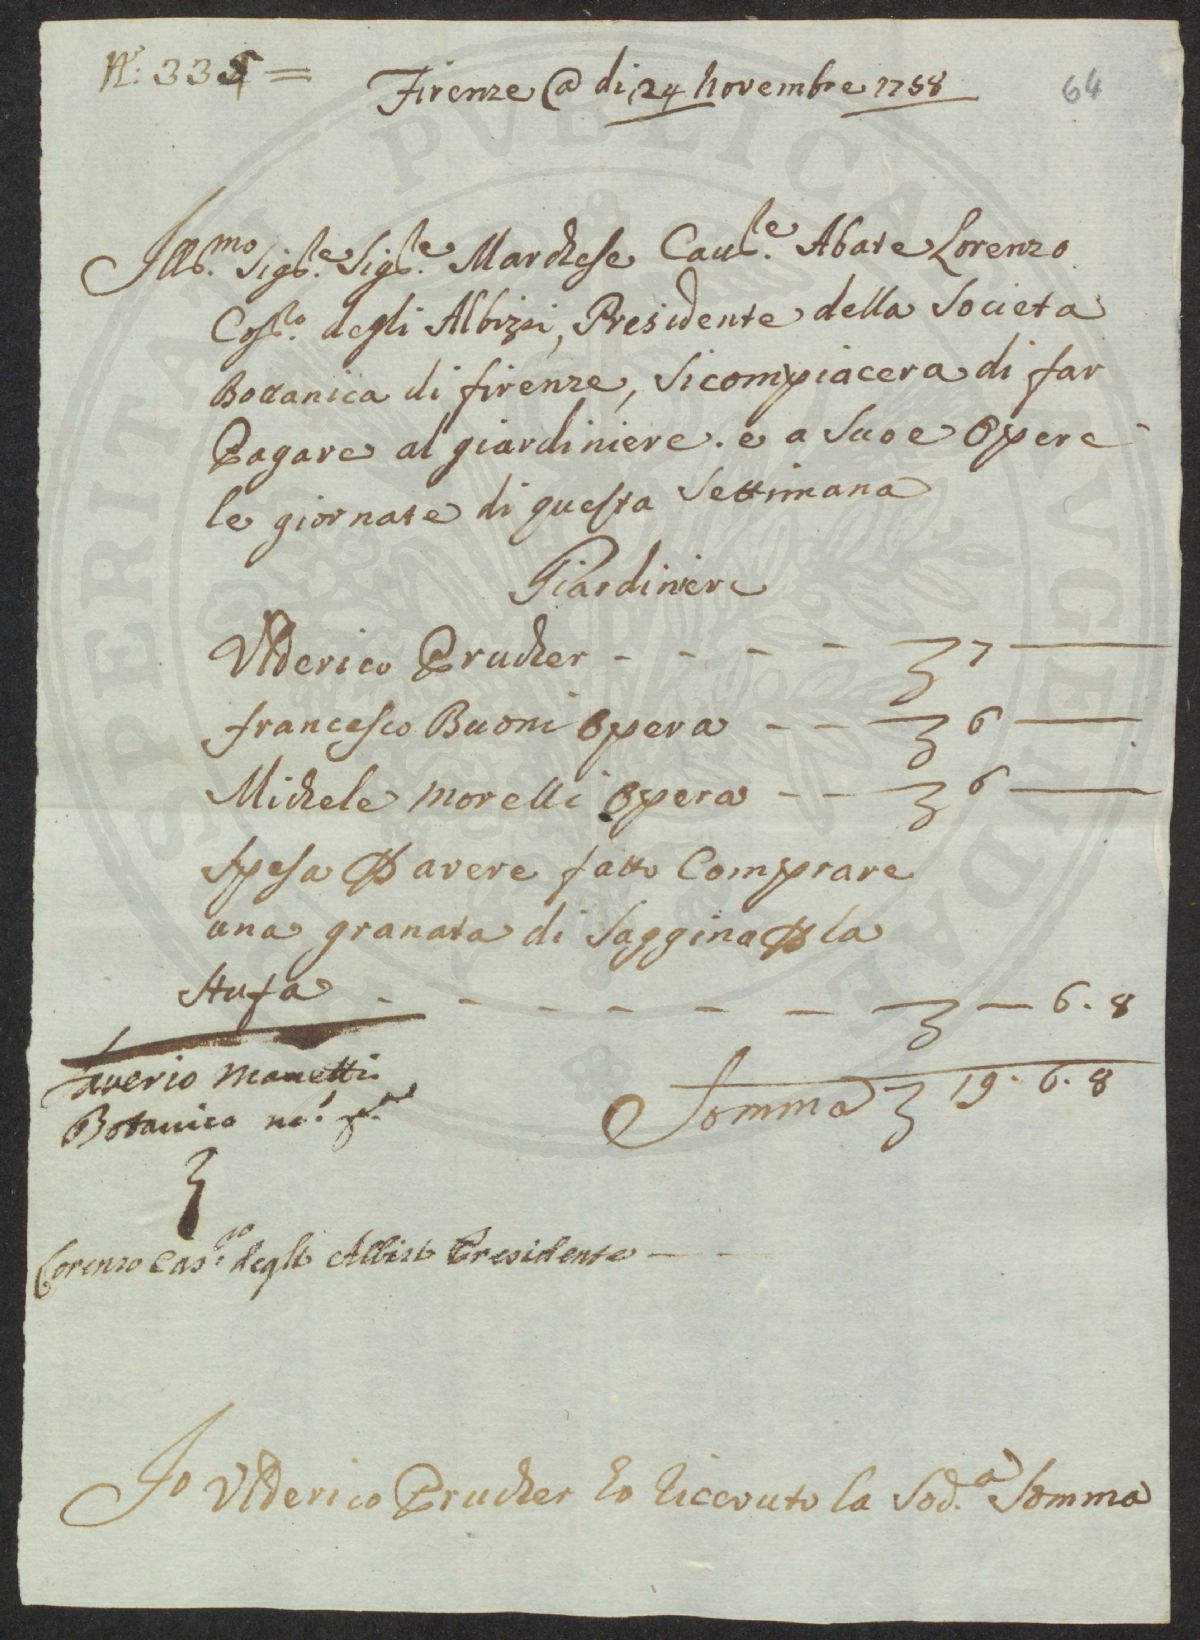 N.° 335 =
Firenze @ di 24 Novembre 1758
64
Ill.mo Sig.re Sig.re Marchese Cau.re Abate Lorenzo
Cos.o degli Albizzi, Presidente della Societa
Bottanica di firenze, Sicompiacera di far
Pagare al giardiniere. e a Suoe Opere
le giornate di questa Settimana
Giardiniere
Vlderico Prucher - - - - 7 —
francesco Buoni Opera - - 6 —
Michele Morelli Opera - - 6 —
Spesa p avere fatto Comprare
una granata di Saggina p la
Stufa - - - - - - - — 6. 8
Saverio Manetti
Somma 19. 6. 8
Botanico
Lorenzo Cas.o degli Albizi Presidente — -
Io Vlderico Prucher ho Riceuuto la Sod.a Somma
PROSPERITATI PVBLICAE AVGENDAE